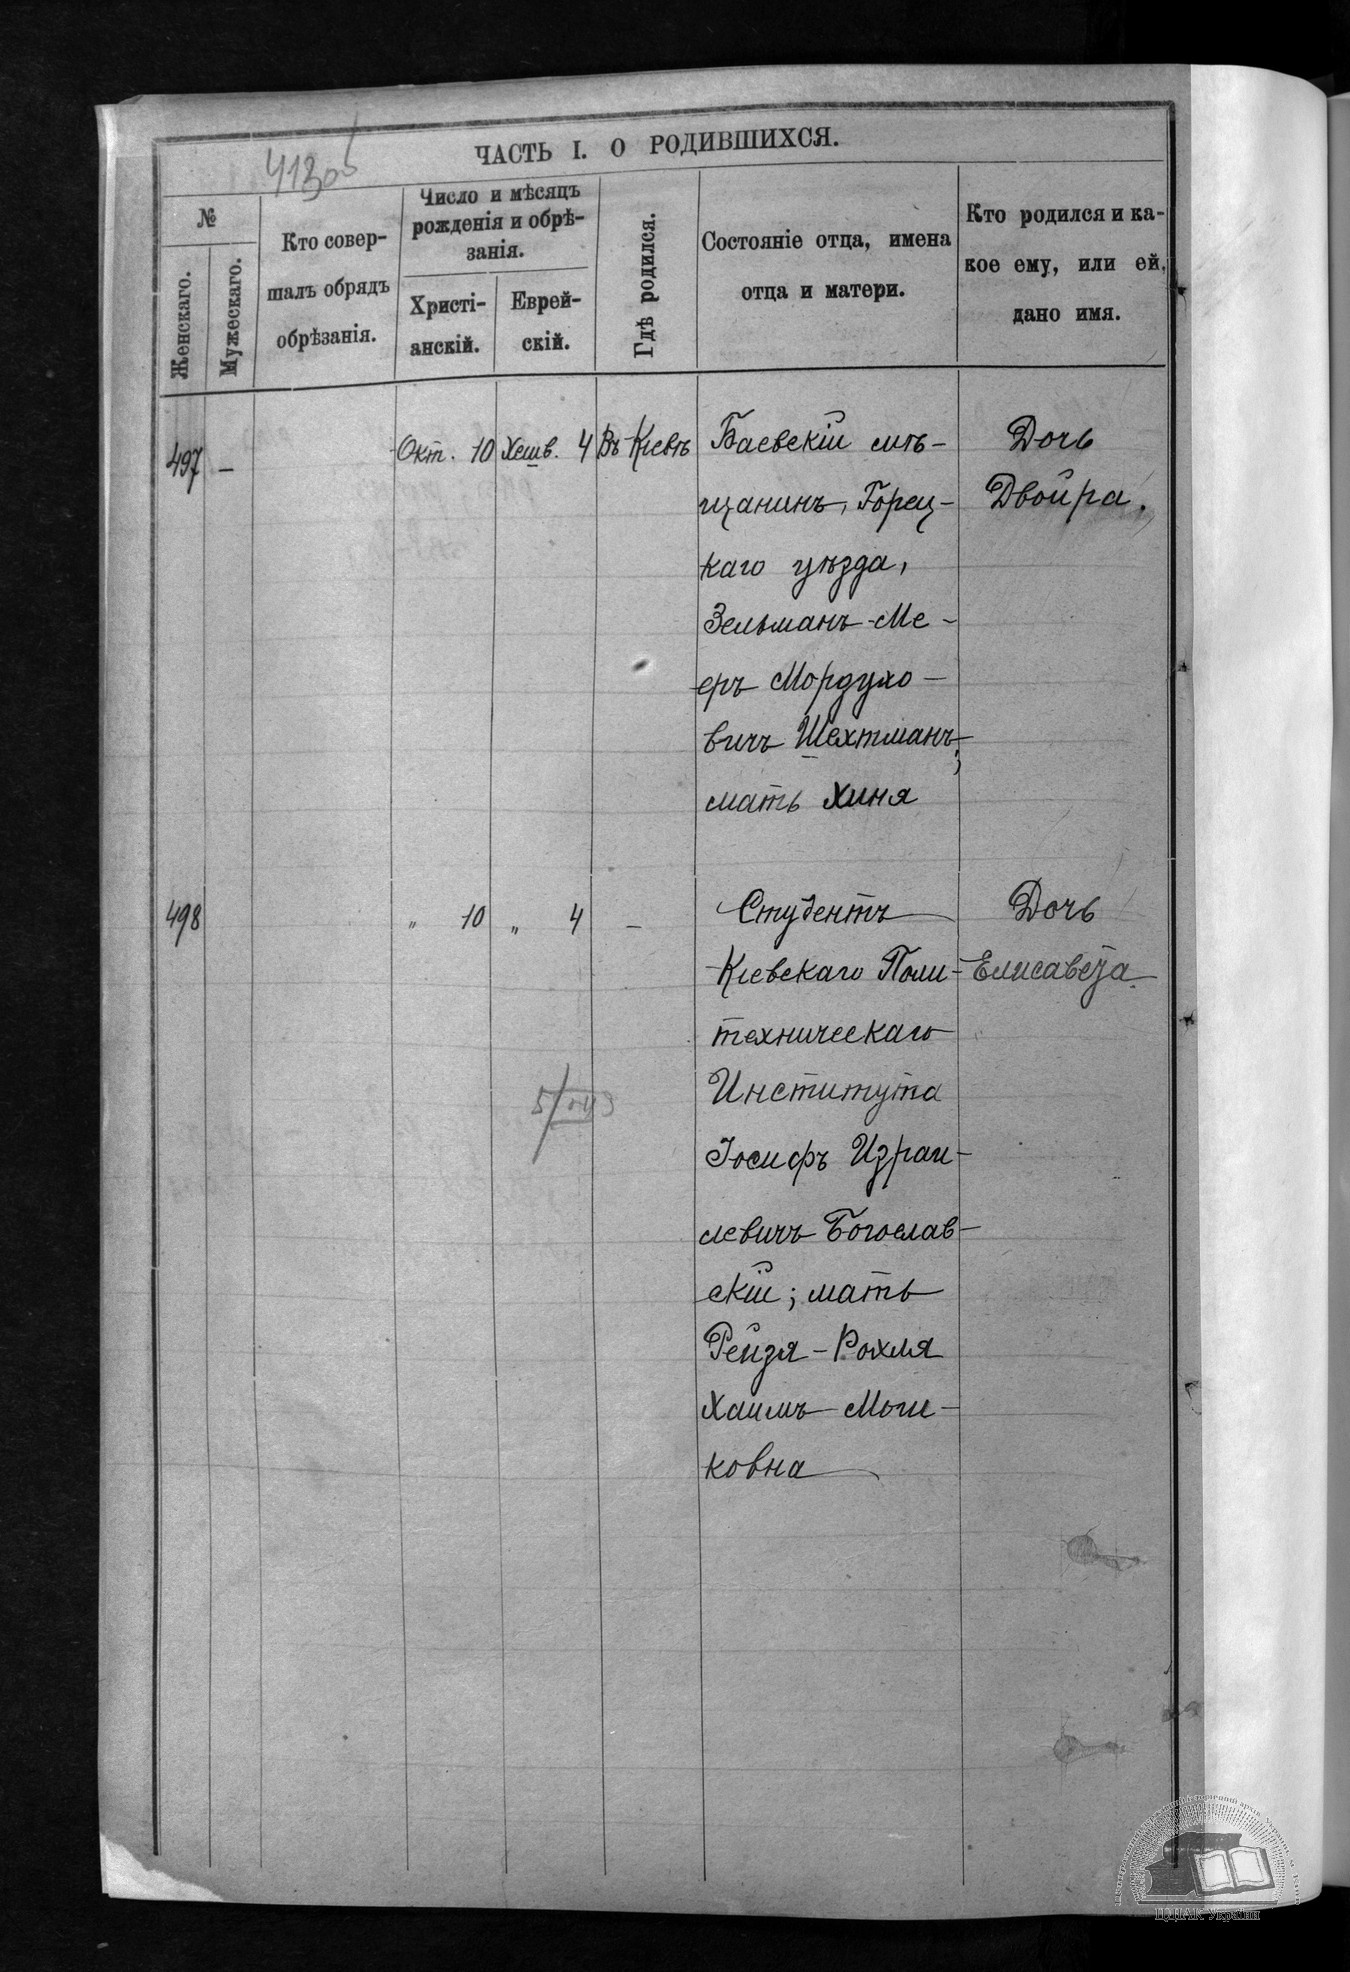 413 об
ЧАСТЬ I. О РОДИВШИХСЯ.
№
Женскаго.
Мужескаго.
Кто совер-
шалъ обрядъ
обрѣзанія.
Число и мѣсяцъ
рожденія и обрѣ-
занія.
Христі-
анскій.
Еврей-
скій.
Гдѣ родился.
Состояніе отца, имена
отца и матери.
Кто родился и ка-
кое ему, или ей,
дано имя.
497 –
Окт. 10
Хешв. 4
Въ Кіевѣ
Баевскій мѣ-
щанинъ, Горец-
каго уѣзда,
Зельманъ-Ме-
еръ Мордухо-
вичъ Шехтманъ;
мать Хиня
Дочь
Двойра.
498
" 10
" 4
–
Студентъ
Кіевскаго Поли-
техническаго
Института
Іосифъ Израи-
левичъ Богослав-
скій; мать
Рейзя-Рохля
Хаимъ-Мош-
ковна
Дочь
Елисавета.
ЦДІАК України